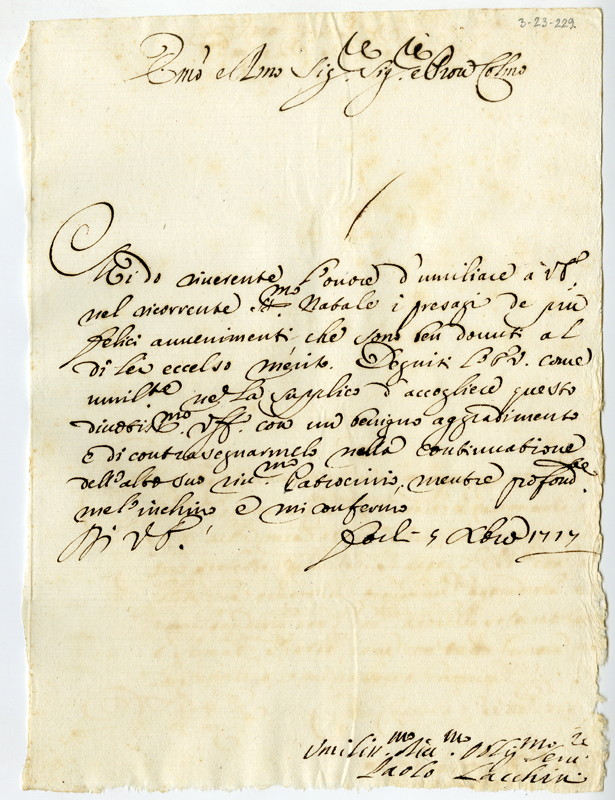 3-23-229.
Emo e Rmo Sig.re Sig.re e Pron Colmo
Mi do riverente l'onore d'umiliare à V.E.
nel ricorrente S.mo Natale i presagi de più
felici avvenimenti che sono ben dovuti al
di lei eccelso merito. Degniti l'E.V. come
umil.te nella supplico d'accogliere questo
divotis.mo Uff. con un benigno aggradimento
e di contrasegnarmelo nella continuatione
dell'alto suo riv.mo Patrocinio, mentre profond.te
mel'inchino e mi confermo
Di V.E.
Forlì 5 Xbre 1717
Umiliss.mo Div.mo Oblig.mo Serv.re
Paolo Zacchini